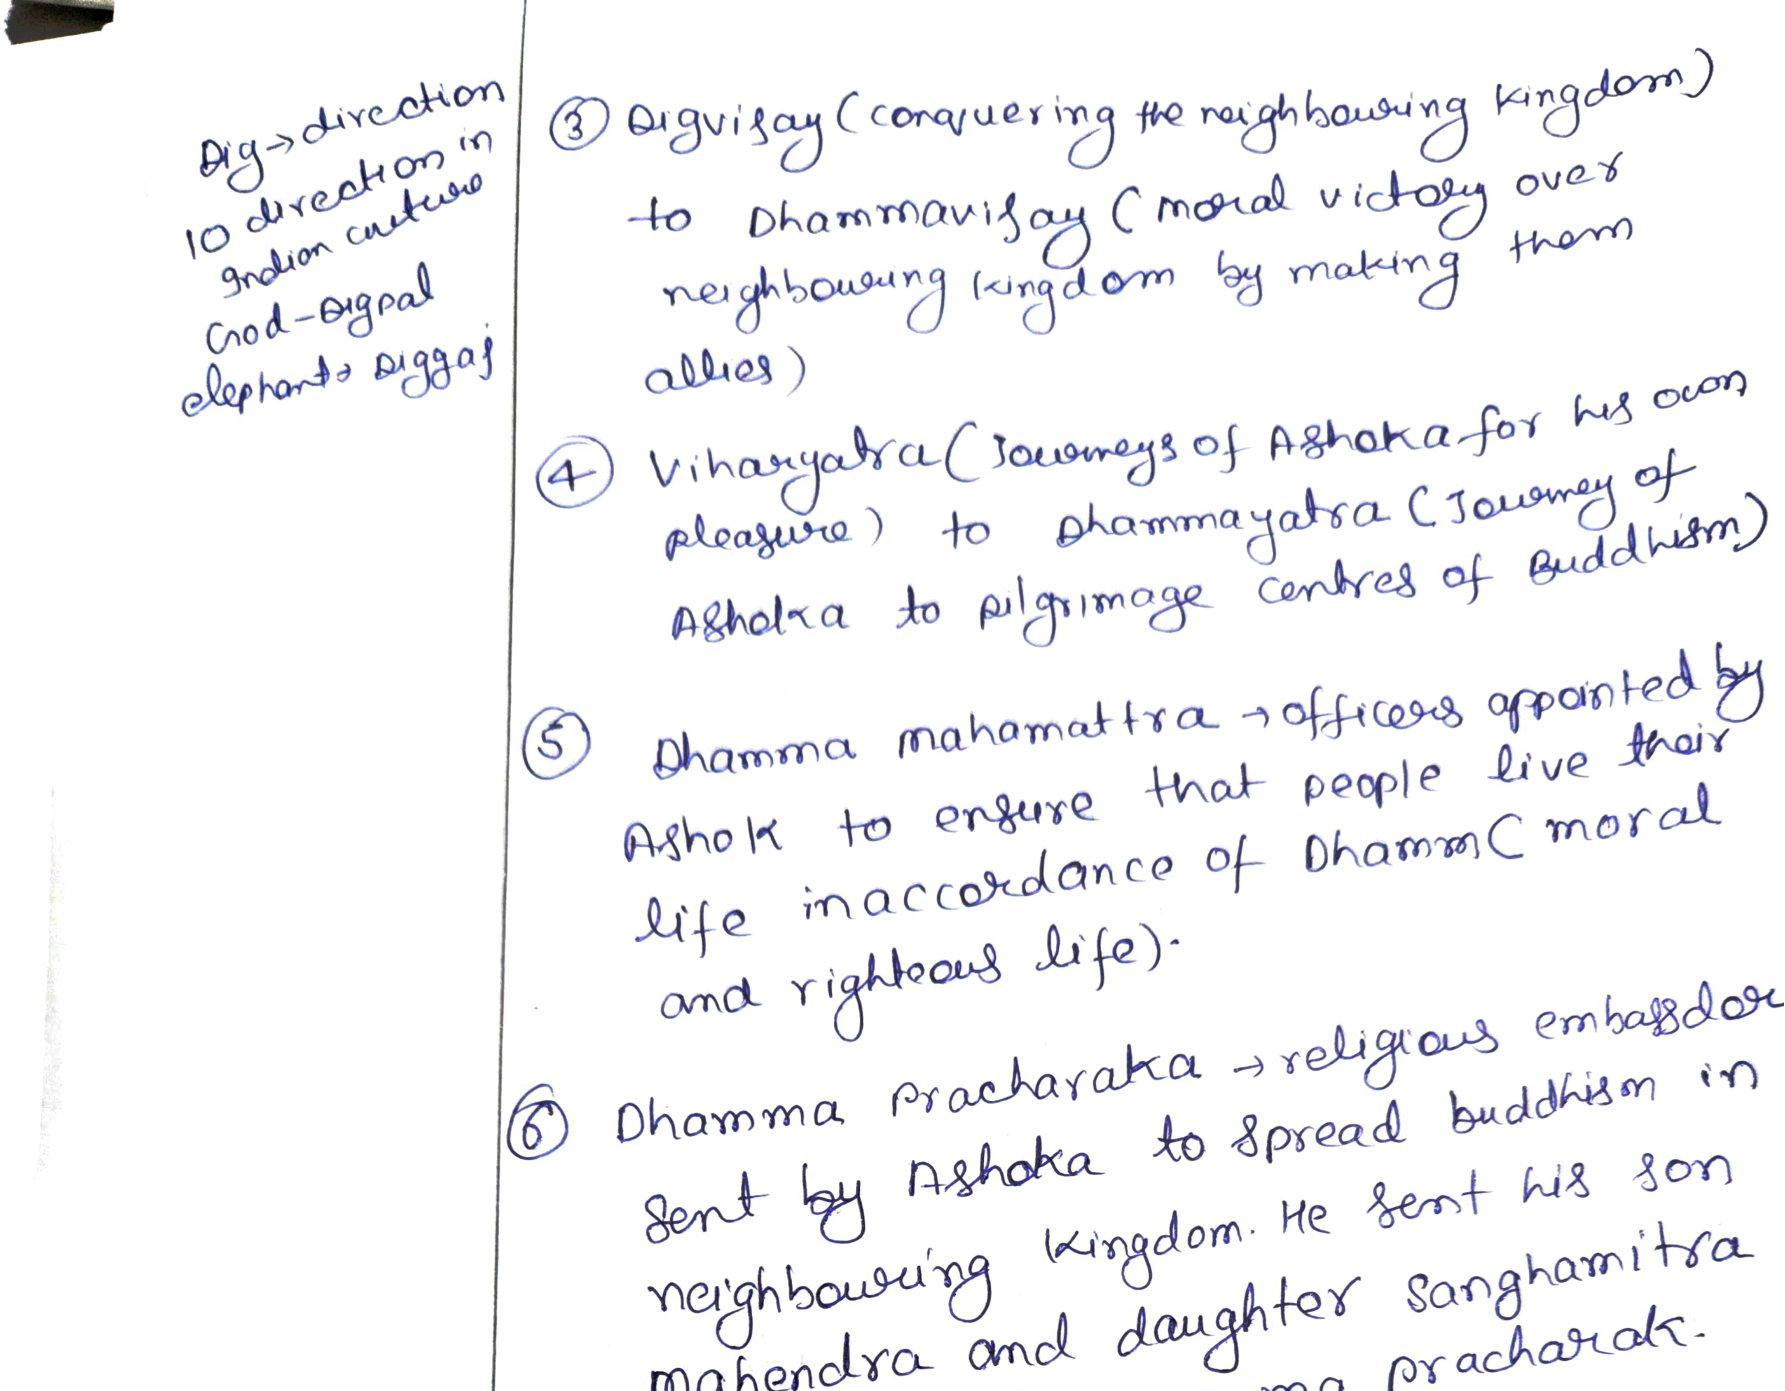 Dig → direction
10 direction in
Indian culture
God - Digpal
elephant → Diggaj
③ Digvijay (conquering the neighbouring kingdom)
to Dhammavijay (moral victory over
neighbouring kingdom by making them
allies)
④ Viharyatra (Journeys of Ashoka for his own
pleasure) to Dhammayatra (Journey of
Ashoka to pilgrimage centres of Buddhism)
⑤ Dhamma mahamattra → officers appointed by
Ashok to ensure that people live their
life inaccordance of Dhamm (moral
and righteous life).
⑥ Dhamma Pracharaka → religious embassdor
sent by Ashoka to spread buddhism in
neighbouring kingdom. He sent his son
mahendra and daughter Sanghamitra
pracharak.